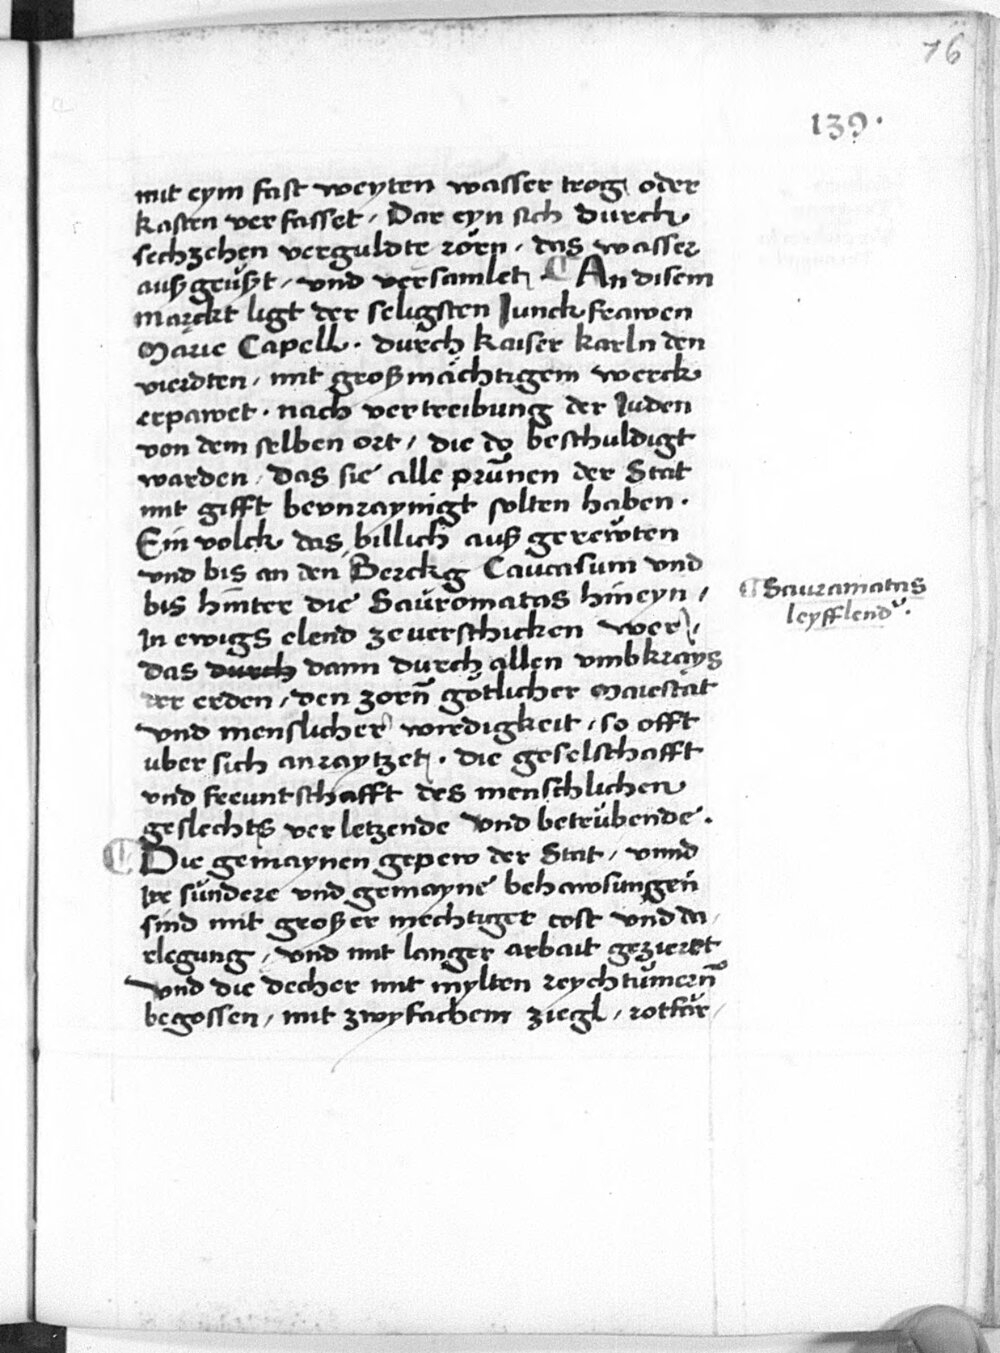 76
139.
mit eym fast weyten wasser trog oder
kasten verfasset / Dar eyn sich durch
sechzehen verguldte rörn / das wasser
außgeüßt / und versamlet. ¶ An disem
marckt ligt der seligsten Junckfrawen
Marie Capell. durch kaiser karln den
vierdten / mit großmächtigem werck
erpawet. nach vertreibung der Juden
von dem selben ort / die do beschuldigt
warden / das sie alle prunnen der Stat
mit gifft beunraynigt solten haben.
Ein volck das billich auß gerewten
und bis an den Berckg Caucasum und
bis hinter die Sauromatas hineyn /
In ewigs elend zeverschicken wer /
das durch dann durch allen umbkrays
der erden / den zorn götlicher Maiestat
und menslicher wirdigkeit / so offt
uber sich anraytzet. die geselschafft
und freuntschafft des menschlichen
geslechts verletzende und betrübende.
¶ Die gemaynen gepew der Stat / unnd
ire sündere und gemayne behawsungen
sind mit großer mechtiger cost und da /
rlegung / und mit langer arbait gezieret
und die decher mit mylten reychtumern
begossen / mit zwyfachem ziegl / rotfar /
¶ Sauramatas
leyfflend.